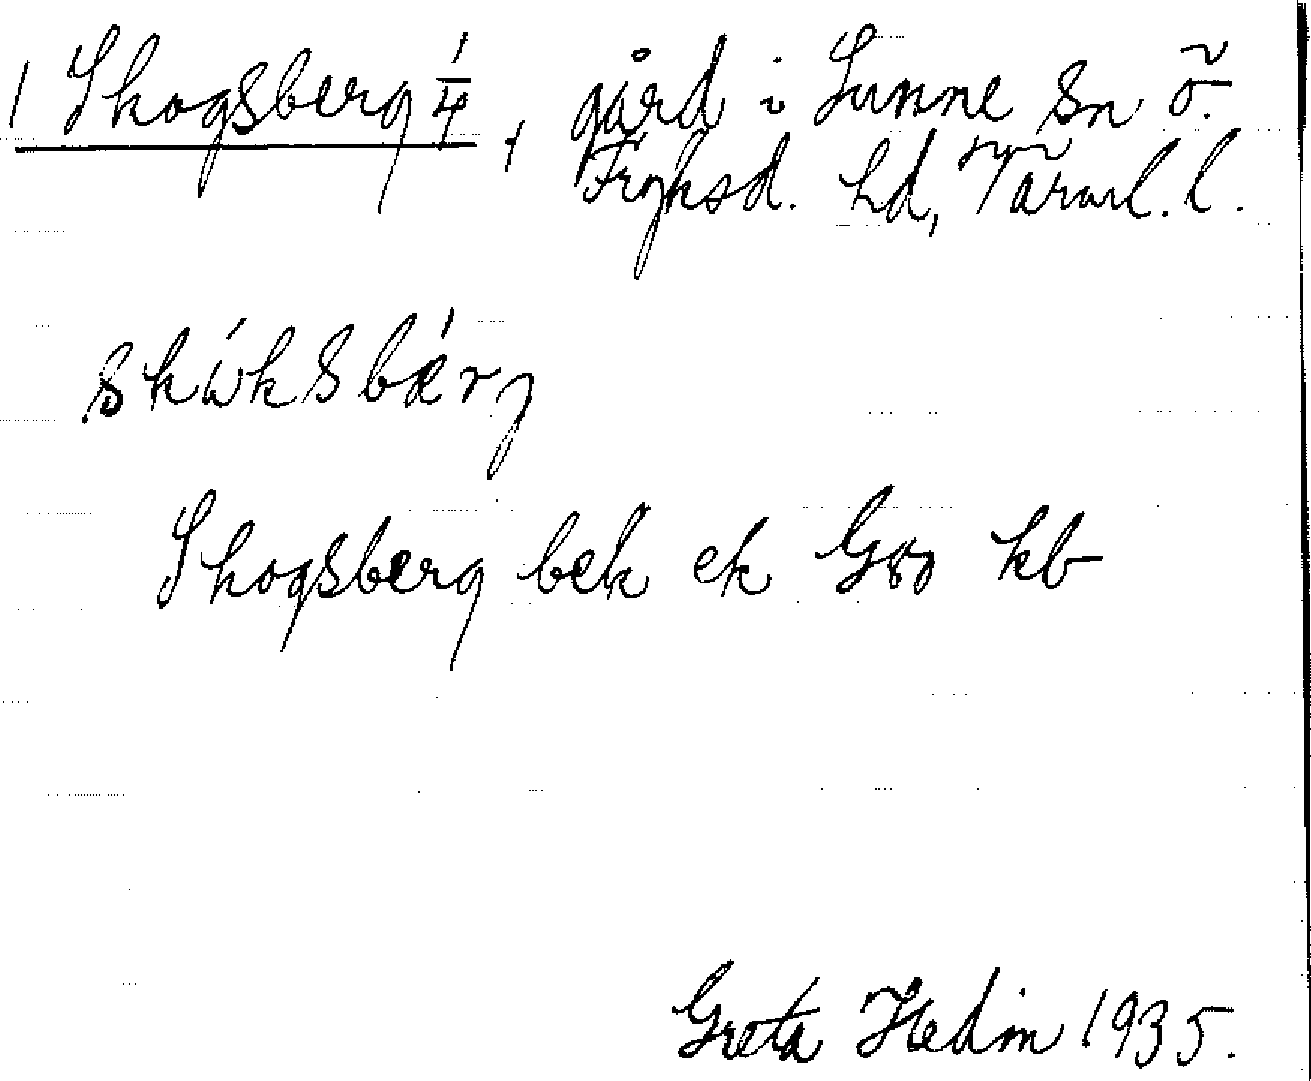 1 Skogsberg 1/4, gård i Sunne sn Ö.
Fryksd. hd, Värml. l.
skώksbǽrj
Skogsberg bek ek Gεo kb
Greta Hedin 1935.